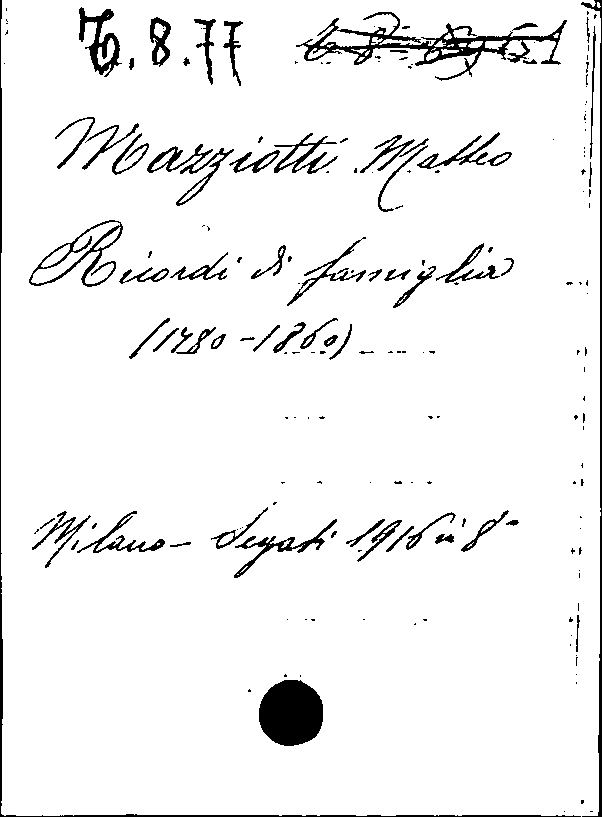 7.8.77
Mazziotti Matteo
Ricordi di famiglia
(1780-1860)
Milano - Segati 1916 in 8°